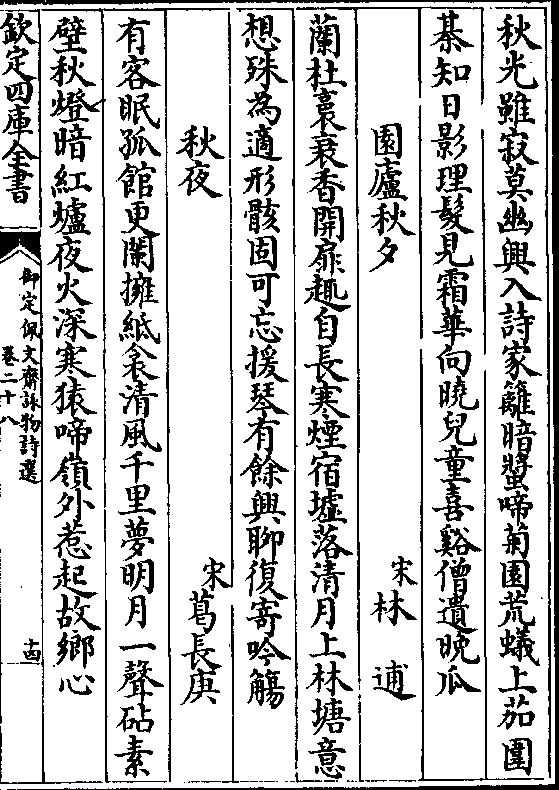 秋光雖寂莫幽興入詩家籬暗螿啼菊園荒蟻上茄圍
棊知日影理髮見霜華向曉兒童喜谿僧遺晚瓜
園廬秋夕
宋林逋
蘭杜裛衰香開扉趣自長寒煙宿墟落清月上林塘意
想殊為適形骸固可忘援琴有餘興聊復寄吟觴
秋夜
宋葛長庚
有客眠孤館更闌擁紙衾清風千里夢明月一聲砧素
壁秋燈暗紅爐夜火深寒猿啼嶺外惹起故鄉心
欽定四庫全書
御定佩文齋詠物詩選
卷二十八
十四